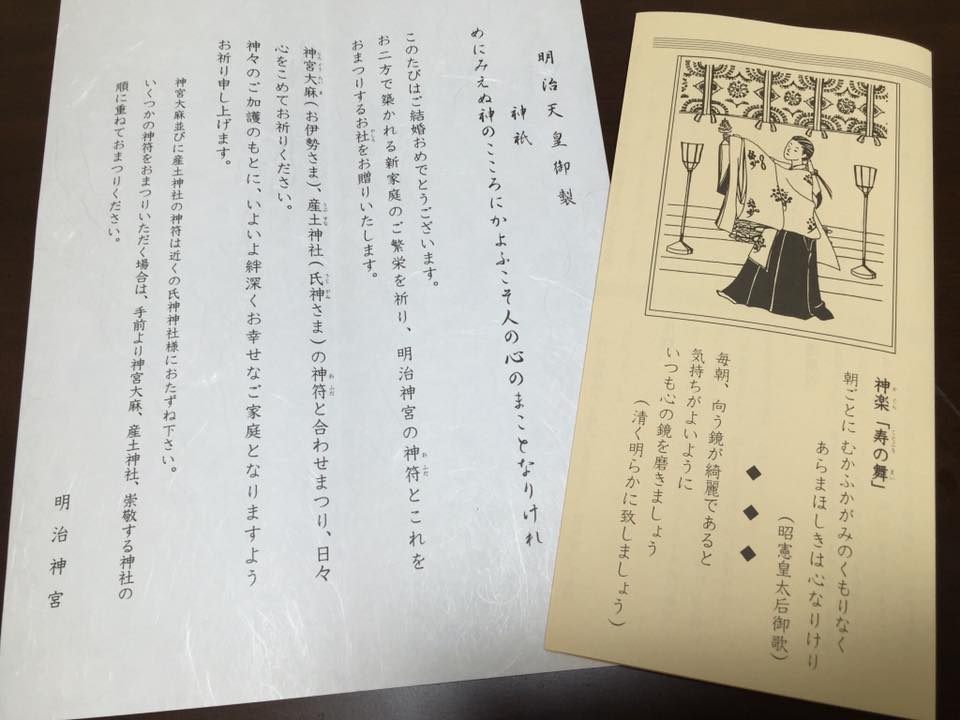 明治天皇御製
神祇
めにみえぬ神のこころにかよふこそ人の心のまことなりけれ
このたびはご結婚おめでとうございます。
お二方で築かれる新家庭のご繁栄を祈り、明治神宮の神符とこれを
おまつりするお社をお贈りいたします。
神宮大麻(お伊勢さま)、産土神社(氏神さま)の神符と合わせまつり、日々
心をこめてお祈りください。
神々のご加護のもとに、いよいよ絆深くお幸せなご家庭となりますよう
お祈り申し上げます。
神宮大麻並びに産土神社の神符は近くの氏神神社様におたずね下さい。
いくつかの神符をおまつりいただく場合は、手前より神宮大麻、産土神社、崇敬する神社の
順に重ねておまつりください。
明治神宮
神楽「寿の舞」
朝ごとに むかふかがみのくもりなく
あらまほしきは心なりけり
(昭憲皇太后御歌)
◆ ◆ ◆
毎朝、向う鏡が綺麗であると
気持ちがよいように
いつも心の鏡を磨きましょう
(清く明らかに致しましょう)